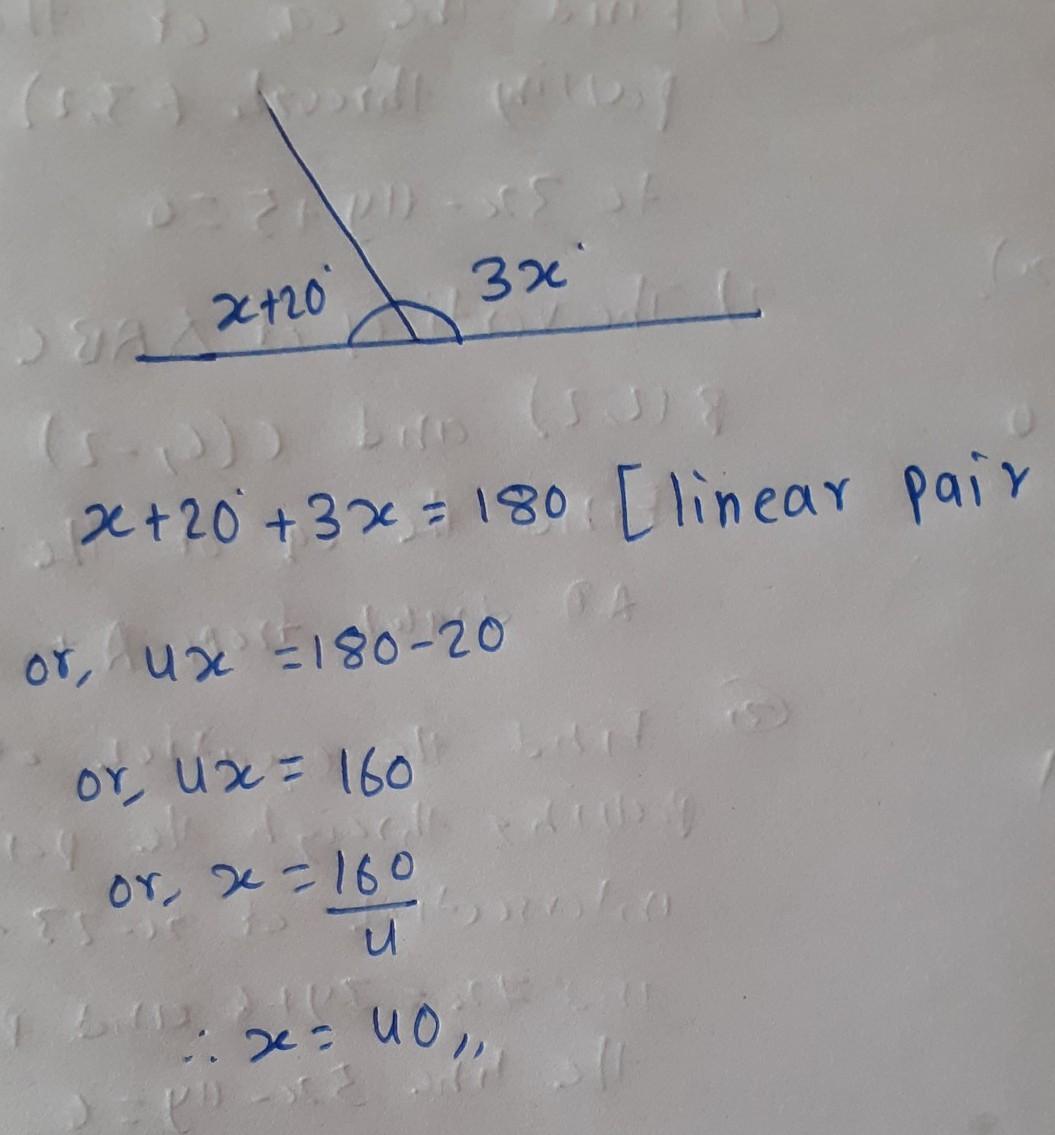 x+20° 3x°
x+20°+3x = 180 [linear pair
or, 4x = 180-20
or, 4x = 160
or, x = 160/4
∴ x = 40,,